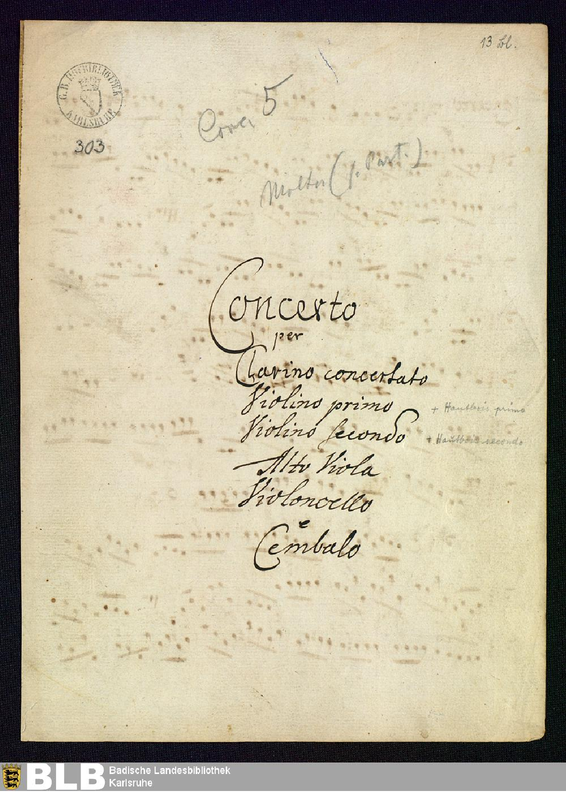 13 bl.
G. H. HOFBIBLIOTHEK
KARLSRUHE
303
Conc. 5
Molter (s. Part.)
Concerto
per
Clarino concertato
Violino primo + Hautbois primo
Violino Secondo + Hautbois secondo
Alto Viola
Violoncello
e
Cembalo
BLB Badische Landesbibliothek
Karlsruhe